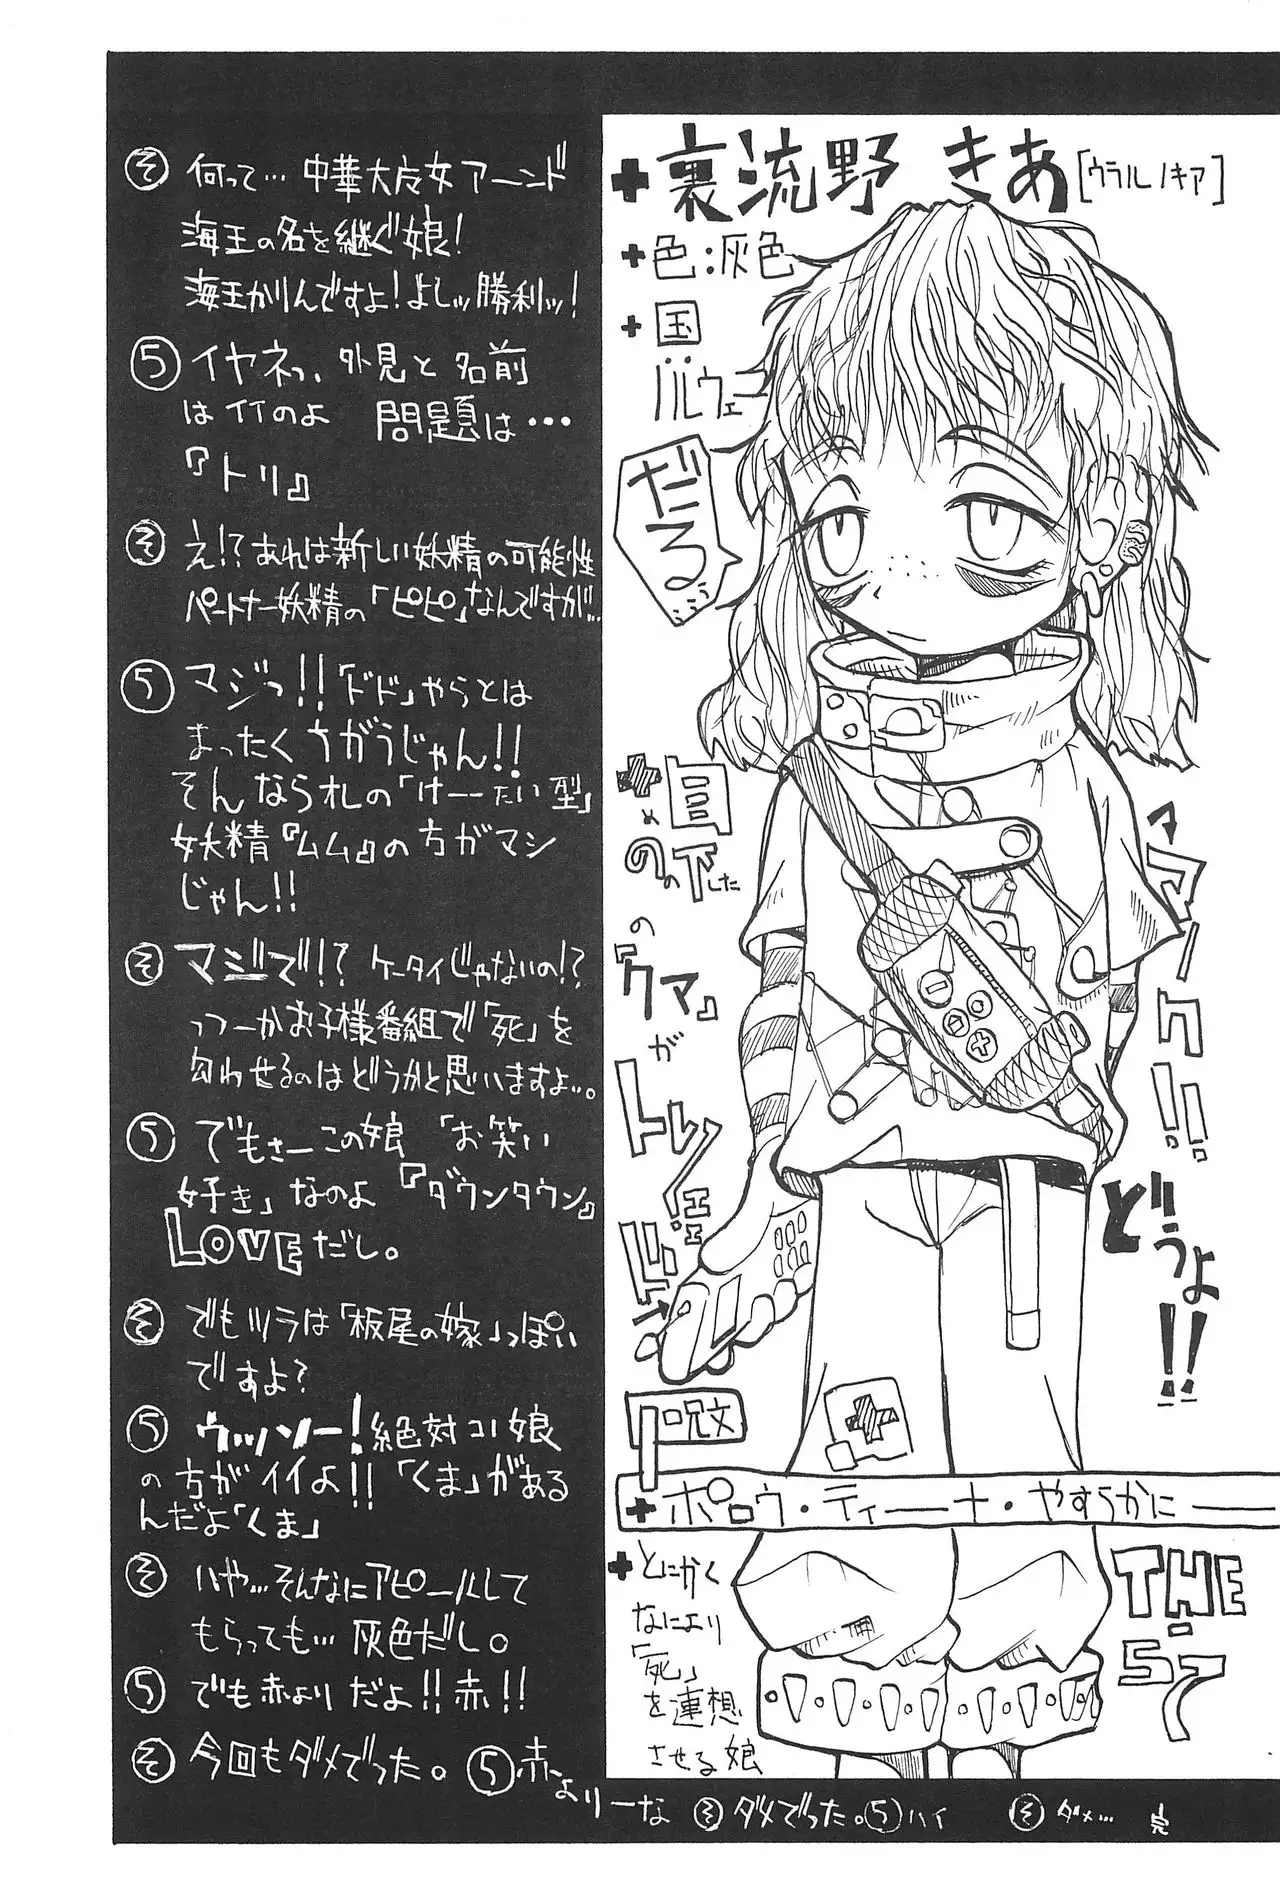 ㋞ 何って…中華大皮女アーンド
海王の名を継ぐ娘!
海王かりんですよ!よしッ勝利ッ!
⑤ イヤネっ、外見と名前
はイイのよ 問題は…
『トリ』
㋞ え!?あれは新しい妖精の可能性
パートナー妖精の「ピピ」なんですが…
⑤ マジっ!!「ドド」やらとは
まったくちがうじゃん!!
そんならオレの「けーたい型」
妖精『ムム』の方がマシ
じゃん!!
㋞ マジで!?ケータイじゃないの!?
っつーかお子様番組で「死」を
匂わせるのはどうかと思いますよ…。
⑤ でもさーこの娘「お笑い
好き」なのよ『ダウンタウン』
LOVEだし。
㋞ でもツラは「板尾の嫁」っぽい
ですよ?
⑤ ウッソー!絶対コノ娘
の方がイイよ!!「くま」がある
んだよ「くま」
㋞ いや…そんなにアピールして
もらっても…灰色だし。
⑤ でも赤よりだよ!!赤!!
㋞ 今回もダメでった。⑤赤
よりーな ㋞ダメでった。⑤ハイ ㋞ダメ… 完
裏流野 きあ[ウラルノキア]
色:灰色
国
ノルウェー
だるぅ…
目の下の
『クマ』が
トレンド
マアーク!!
どうよ!!
呪文
ポロウ・ティーナ・やすらかにー
とにかく
なにより
「死」
を連想
させる娘
THE